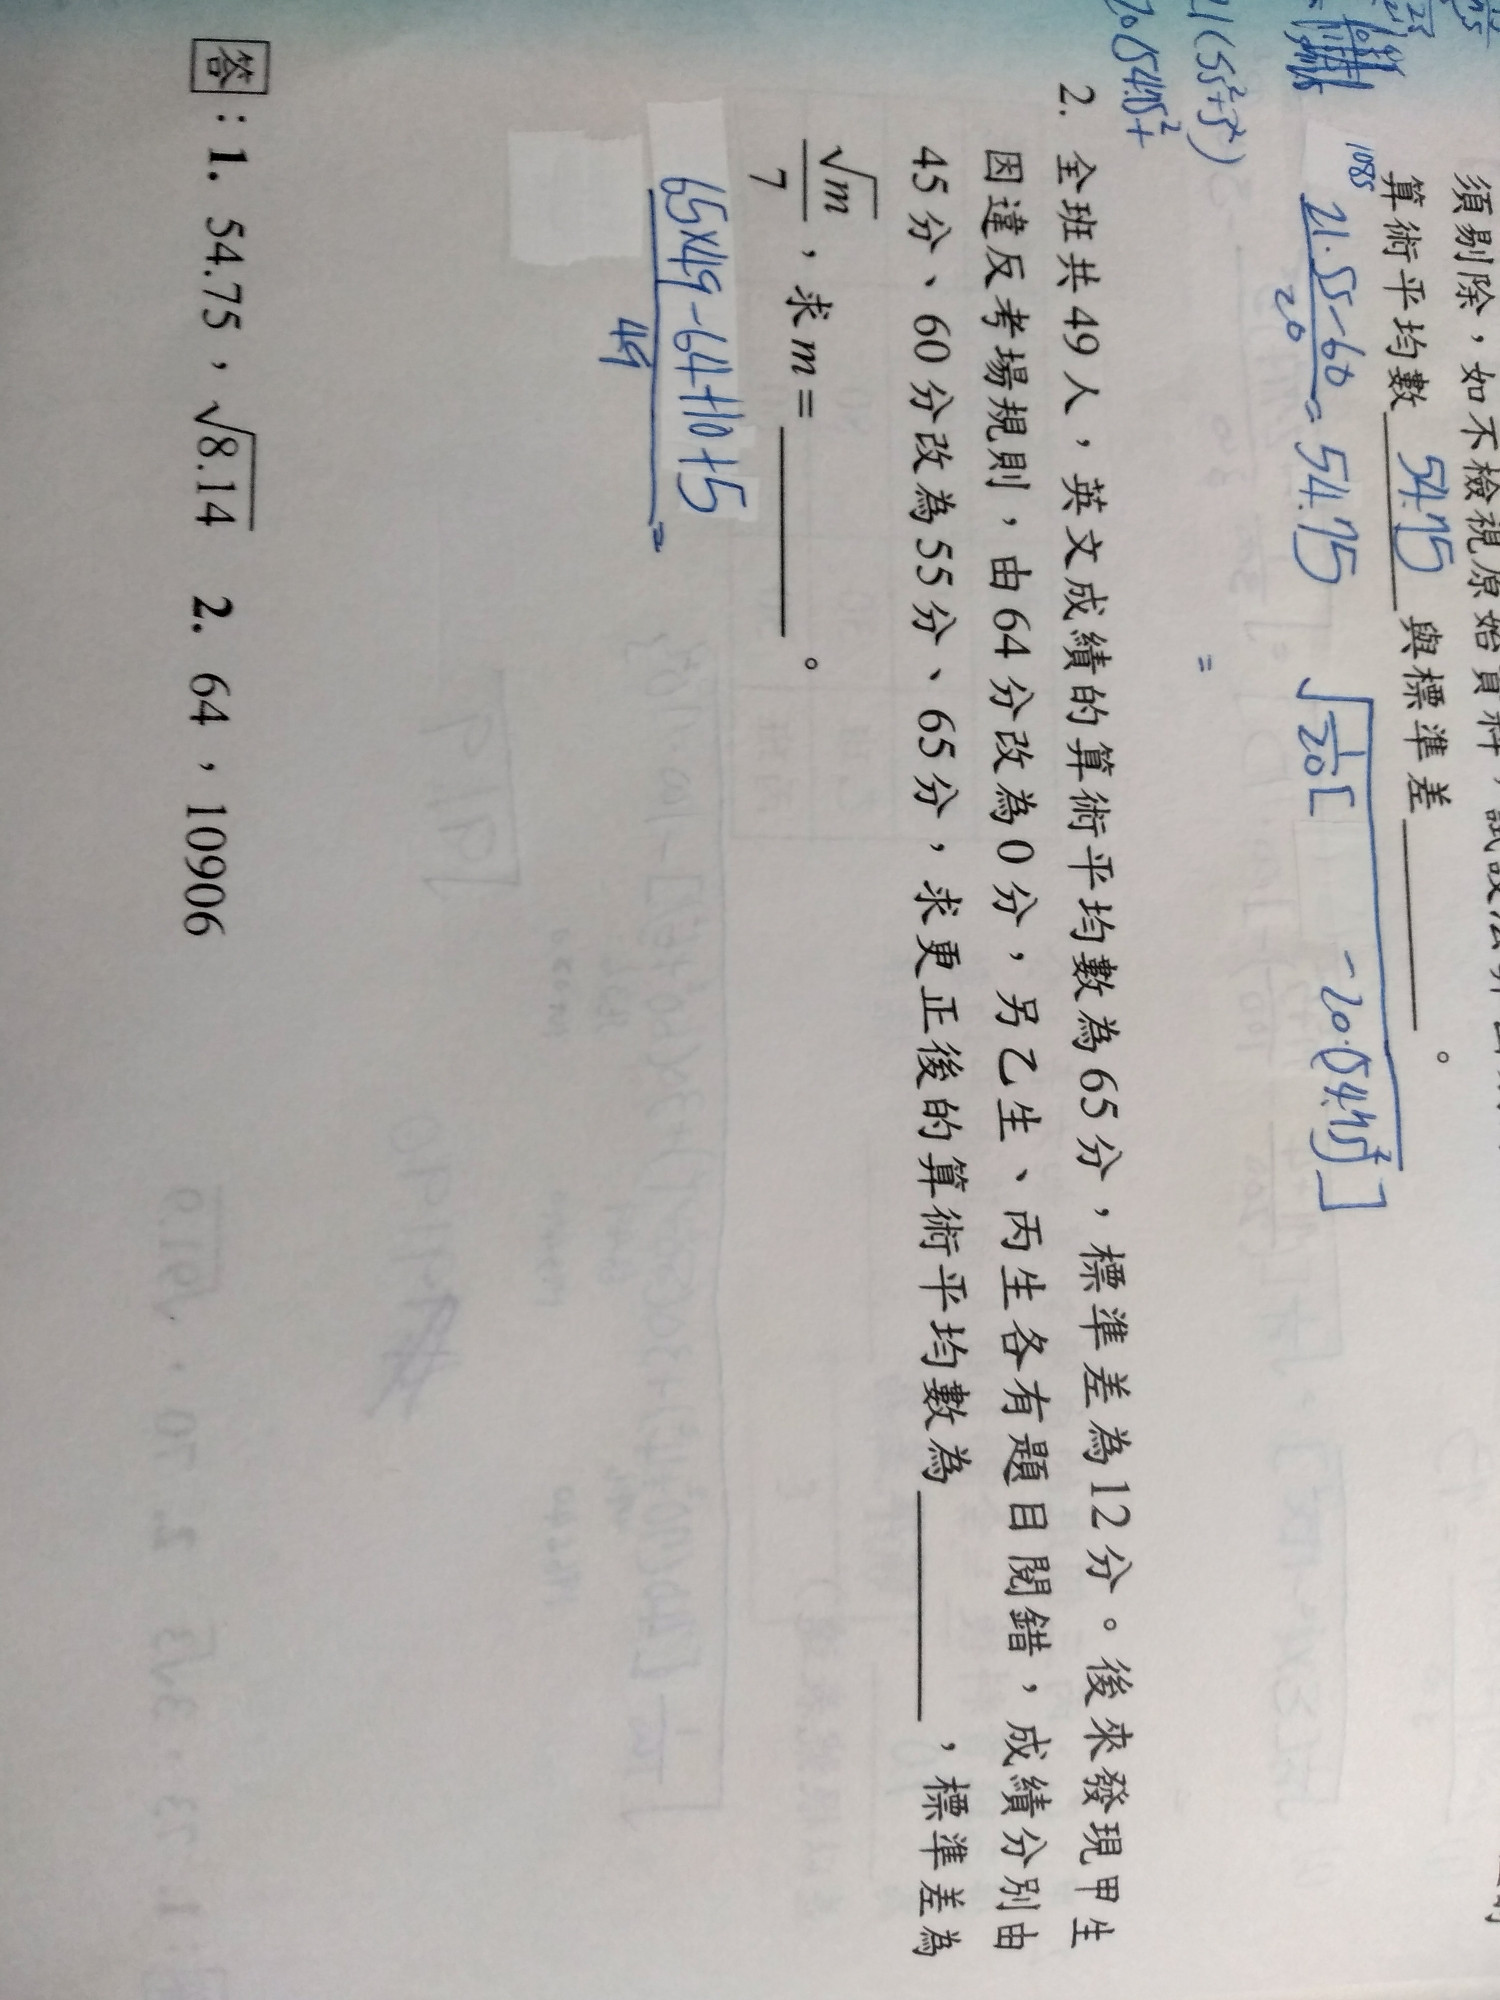 須剔除，如不檢視原始資料，試設法
算術平均數 54.75 與標準差________。
1085
21·55-60
20
= 54.75
√
1
20
[ -20·(54.75)²]
21(55²+5²)
20(54.75²+
=
2. 全班共49人，英文成績的算術平均數為65分，標準差為12分。後來發現甲生
因違反考場規則，由64分改為0分，另乙生、丙生各有題目閱錯，成績分別由
45分、60分改為55分、65分，求更正後的算術平均數為________，標準差為
√m
7
，求m=________。
65×49-64+10+5
49
=
答：1. 54.75，√8.14 2. 64，10906